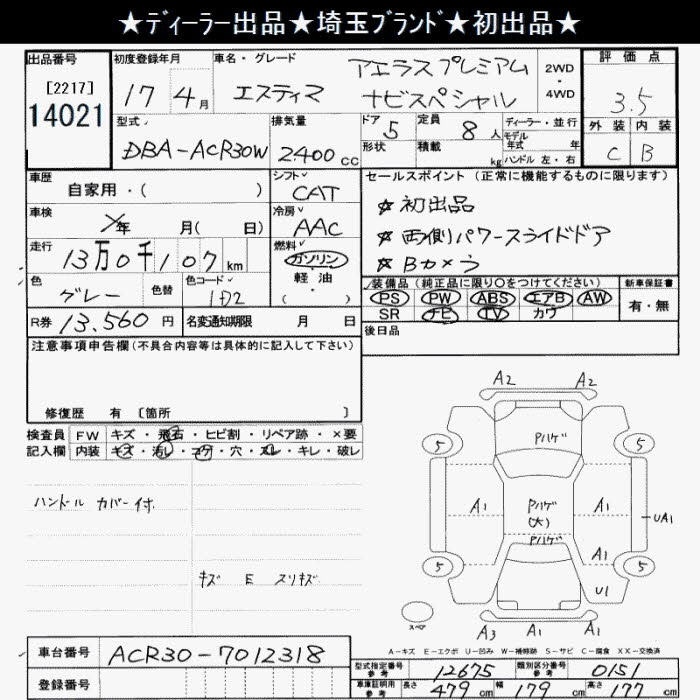 ★ディーラー出品★埼玉ブランド★初出品★
出品番号 初度登録年月 車名・グレード 評価点
[2217] 14021
17年4月 エスティマ アエラスプレミアム ナビスペシャル 2WD・4WD 3.5
型式 排気量 ドア 5 定員 8人 ディーラー・並行 外装 内装
DBA-ACR30W 2400cc 形状 積載 kg モデル年式 年 C B
ハンドル 左・右
車歴 シフト セールスポイント(正常に機能するものに限ります)
自家用・( ) CAT
☆初出品
車検 年 月( 日) 冷房 AAC
☆両側パワースライドドア
走行 13万0千107km 燃料 ガソリン・軽油・( )
☆Bカメラ
色 グレー 色替 色コード 1D2
装備品(純正品に限り○をつけてください) 新車保証書
PS PW ABS エアB AW 有・無
SR ナビ TV カワ
R券 13,560円 名変通知期限 月 日
後日品
注意事項申告欄(不具合内容等は具体的に記入して下さい)
修復歴 有 [箇所 ]
検査員 FW キズ・飛石・ヒビ割・リペア跡・×要
記入欄 内装 キズ・汚レ・コゲ・穴・スレ・キレ・破レ
ハンドル カバー付
キズ E スリキズ
A2 A2
Pハゲ
5 5
A1 Pハゲ(大) A1 UA1
Pハゲ
A1
5 5
U1
スペア
A3 A1 A1
A-キズ E-エクボ U-凹み W-補修跡 S-サビ C-腐食 XX-交換済
車台番号 ACR30-7012318
登録番号
型式指定番号 参考 12675 類別区分番号 参考 0151
車庫証明用 参考 長さ 479cm 幅 179cm 高さ 177cm